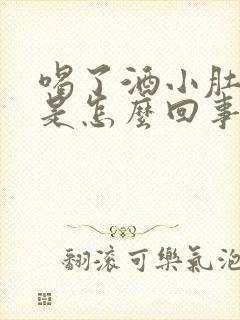 喝了酒小肚
是怎麼回事
翻滾可樂氣泡